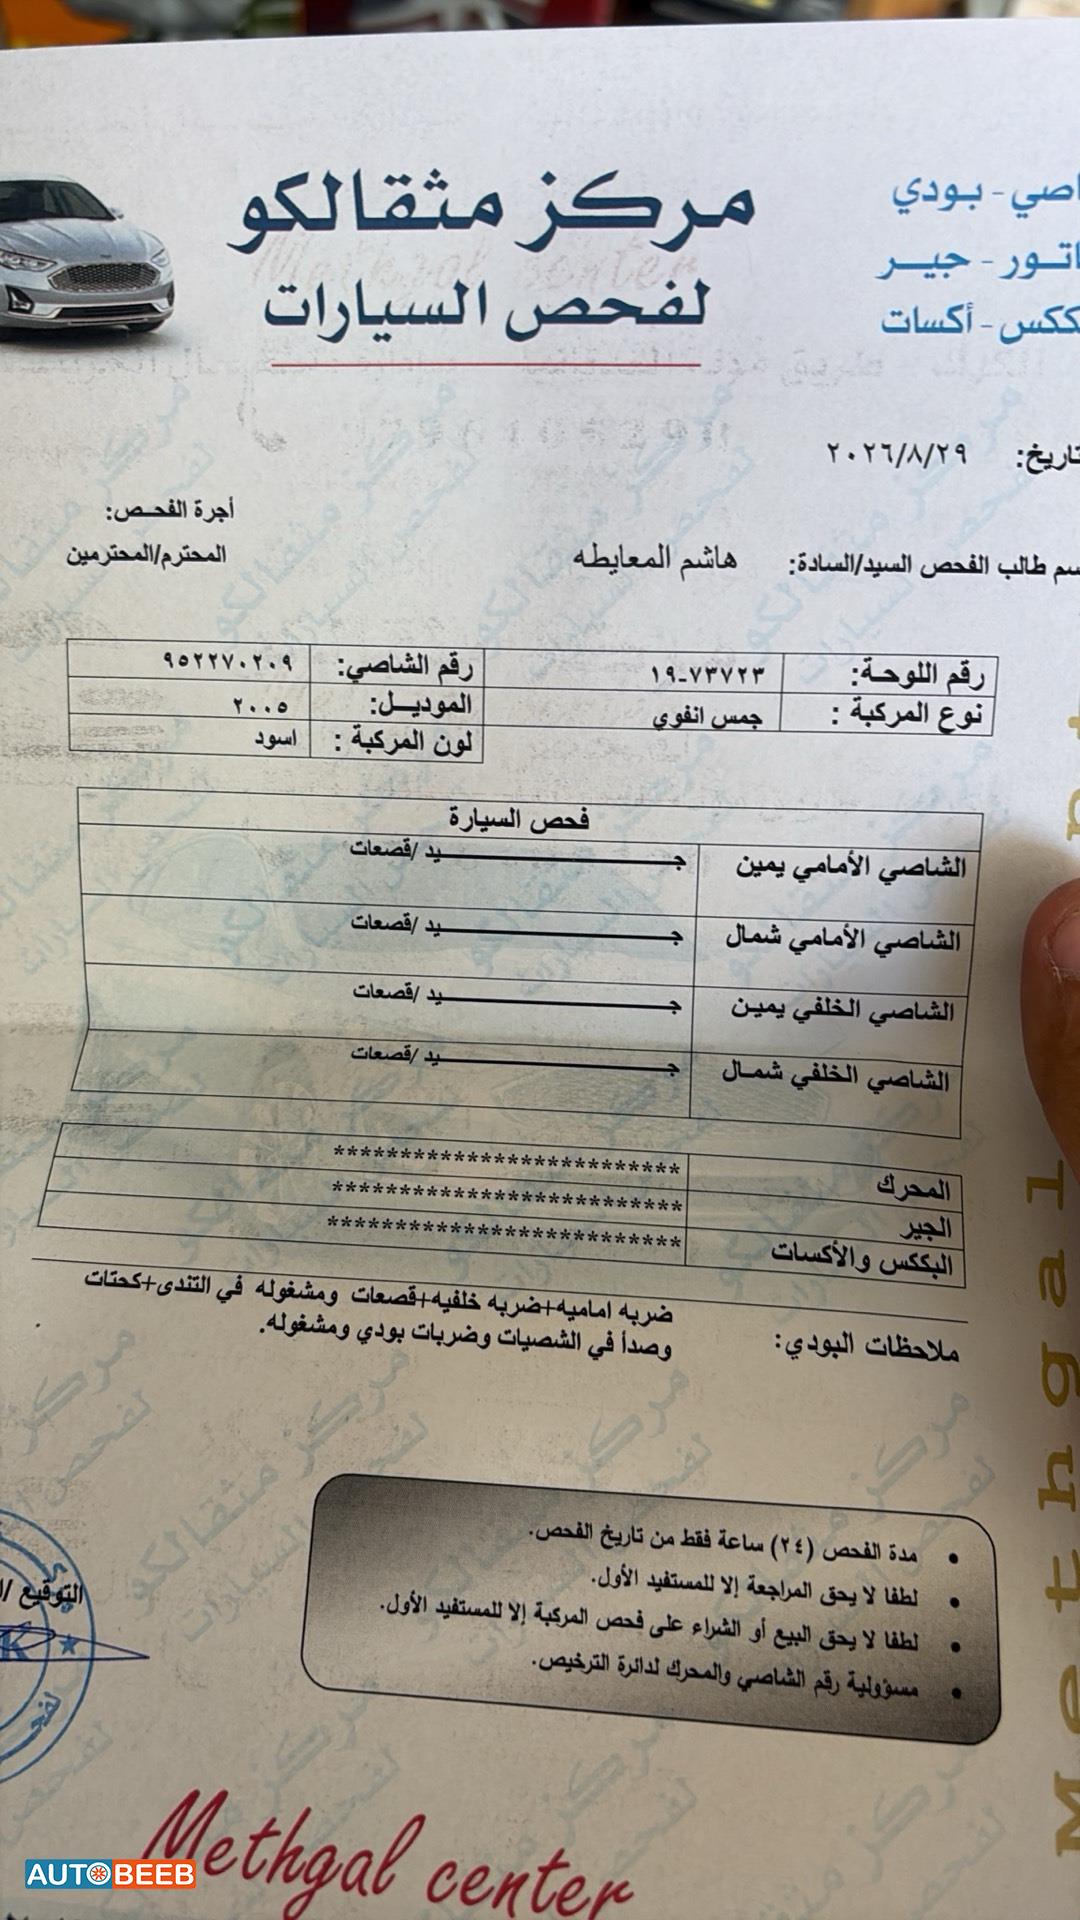 مركز مثقالكو
لفحص السيارات
اصي - بودي
اتور - جير
ككس - أكسات
تاريخ: ٢٠٢٦/٨/٢٩
أجرة الفحص:
سم طالب الفحص السيد/السادة: هاشم المعايطه المحترم/المحترمين
رقم اللوحة: ١٩-٧٣٧٢٣ رقم الشاصي: ٩٥٢٢٧٠٢٠٩
نوع المركبة : جمس انفوي الموديل: ٢٠٠٥
لون المركبة : اسود
فحص السيارة
الشاصي الأمامي يمين جيد /قصعات
الشاصي الأمامي شمال جيد /قصعات
الشاصي الخلفي يمين جيد /قصعات
الشاصي الخلفي شمال جيد /قصعات
المحرك **************************
الجير **************************
البككس والأكسات **************************
ملاحظات البودي: ضربه اماميه+ضربه خلفيه+قصعات ومشغوله في التندى+كحتات
وصدأ في الشصيات وضربات بودي ومشغوله.
• مدة الفحص (٢٤) ساعة فقط من تاريخ الفحص.
• لطفا لا يحق المراجعة إلا للمستفيد الأول.
• لطفا لا يحق البيع أو الشراء على فحص المركبة إلا للمستفيد الأول.
• مسؤولية رقم الشاصي والمحرك لدائرة الترخيص.
التوقيع /
Methgal
Methgal center
AUTOBEEB